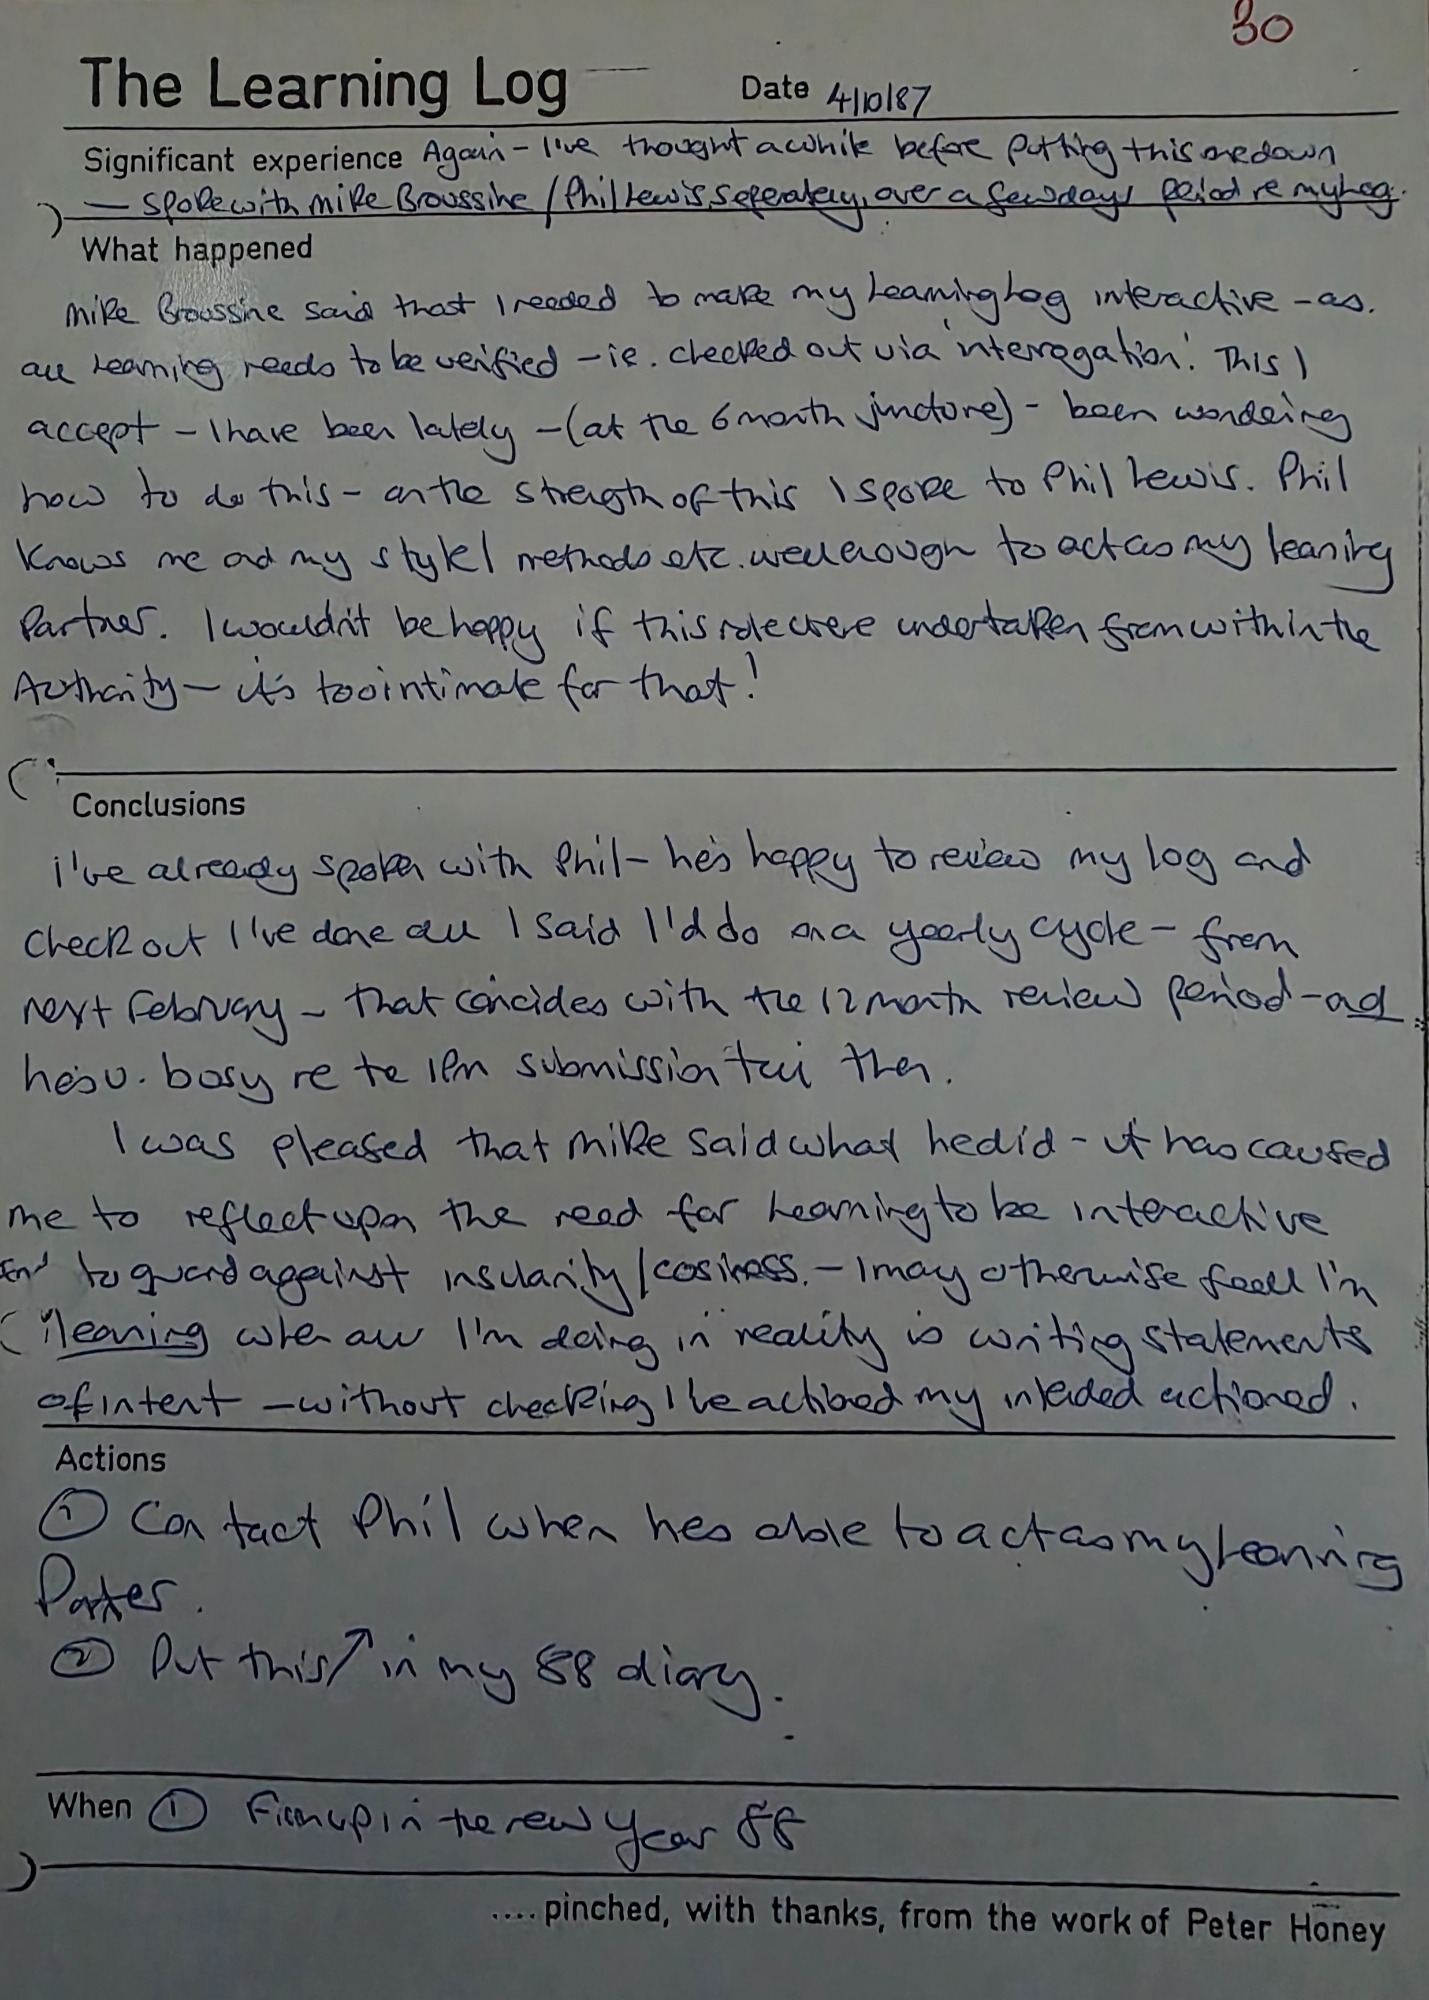 30
The Learning Log
Date 4/10/87
Significant experience Again - I've thought awhile before putting this one down
- spoke with mike Broussine / Phil Lewis, seperately, over a few days period re my Log.
What happened
Mike Broussine said that I needed to make my Learning Log interactive - as
all Learning needs to be verified - ie. checked out via 'interrogation'. This I
accept - I have been lately - (at the 6 month juncture) - been wondering
how to do this - on the strength of this I spoke to Phil Lewis. Phil
knows me and my style / methods etc. well enough to act as my learning
Partner. I wouldn't be happy if this role were undertaken from within the
Authority - it's too intimate for that!
Conclusions
I've already spoken with Phil - he's happy to review my log and
check out I've done all I said I'd do on a yearly cycle - from
next February - that coincides with the 12 month review period - and
he's v. busy re the IPM submission till then.
I was pleased that Mike said what he did - it has caused
me to reflect upon the need for Learning to be interactive
and to guard against insularity / cosiness. - I may otherwise feel I'm
learning when all I'm doing in reality is writing statements
of intent - without checking I've actioned my intended actioned.
Actions
① Contact Phil when hes able to act as my Learning
Partner.
② Put this ↗ in my 88 diary.
When ① Firm up in the new year 88
.... pinched, with thanks, from the work of Peter Honey